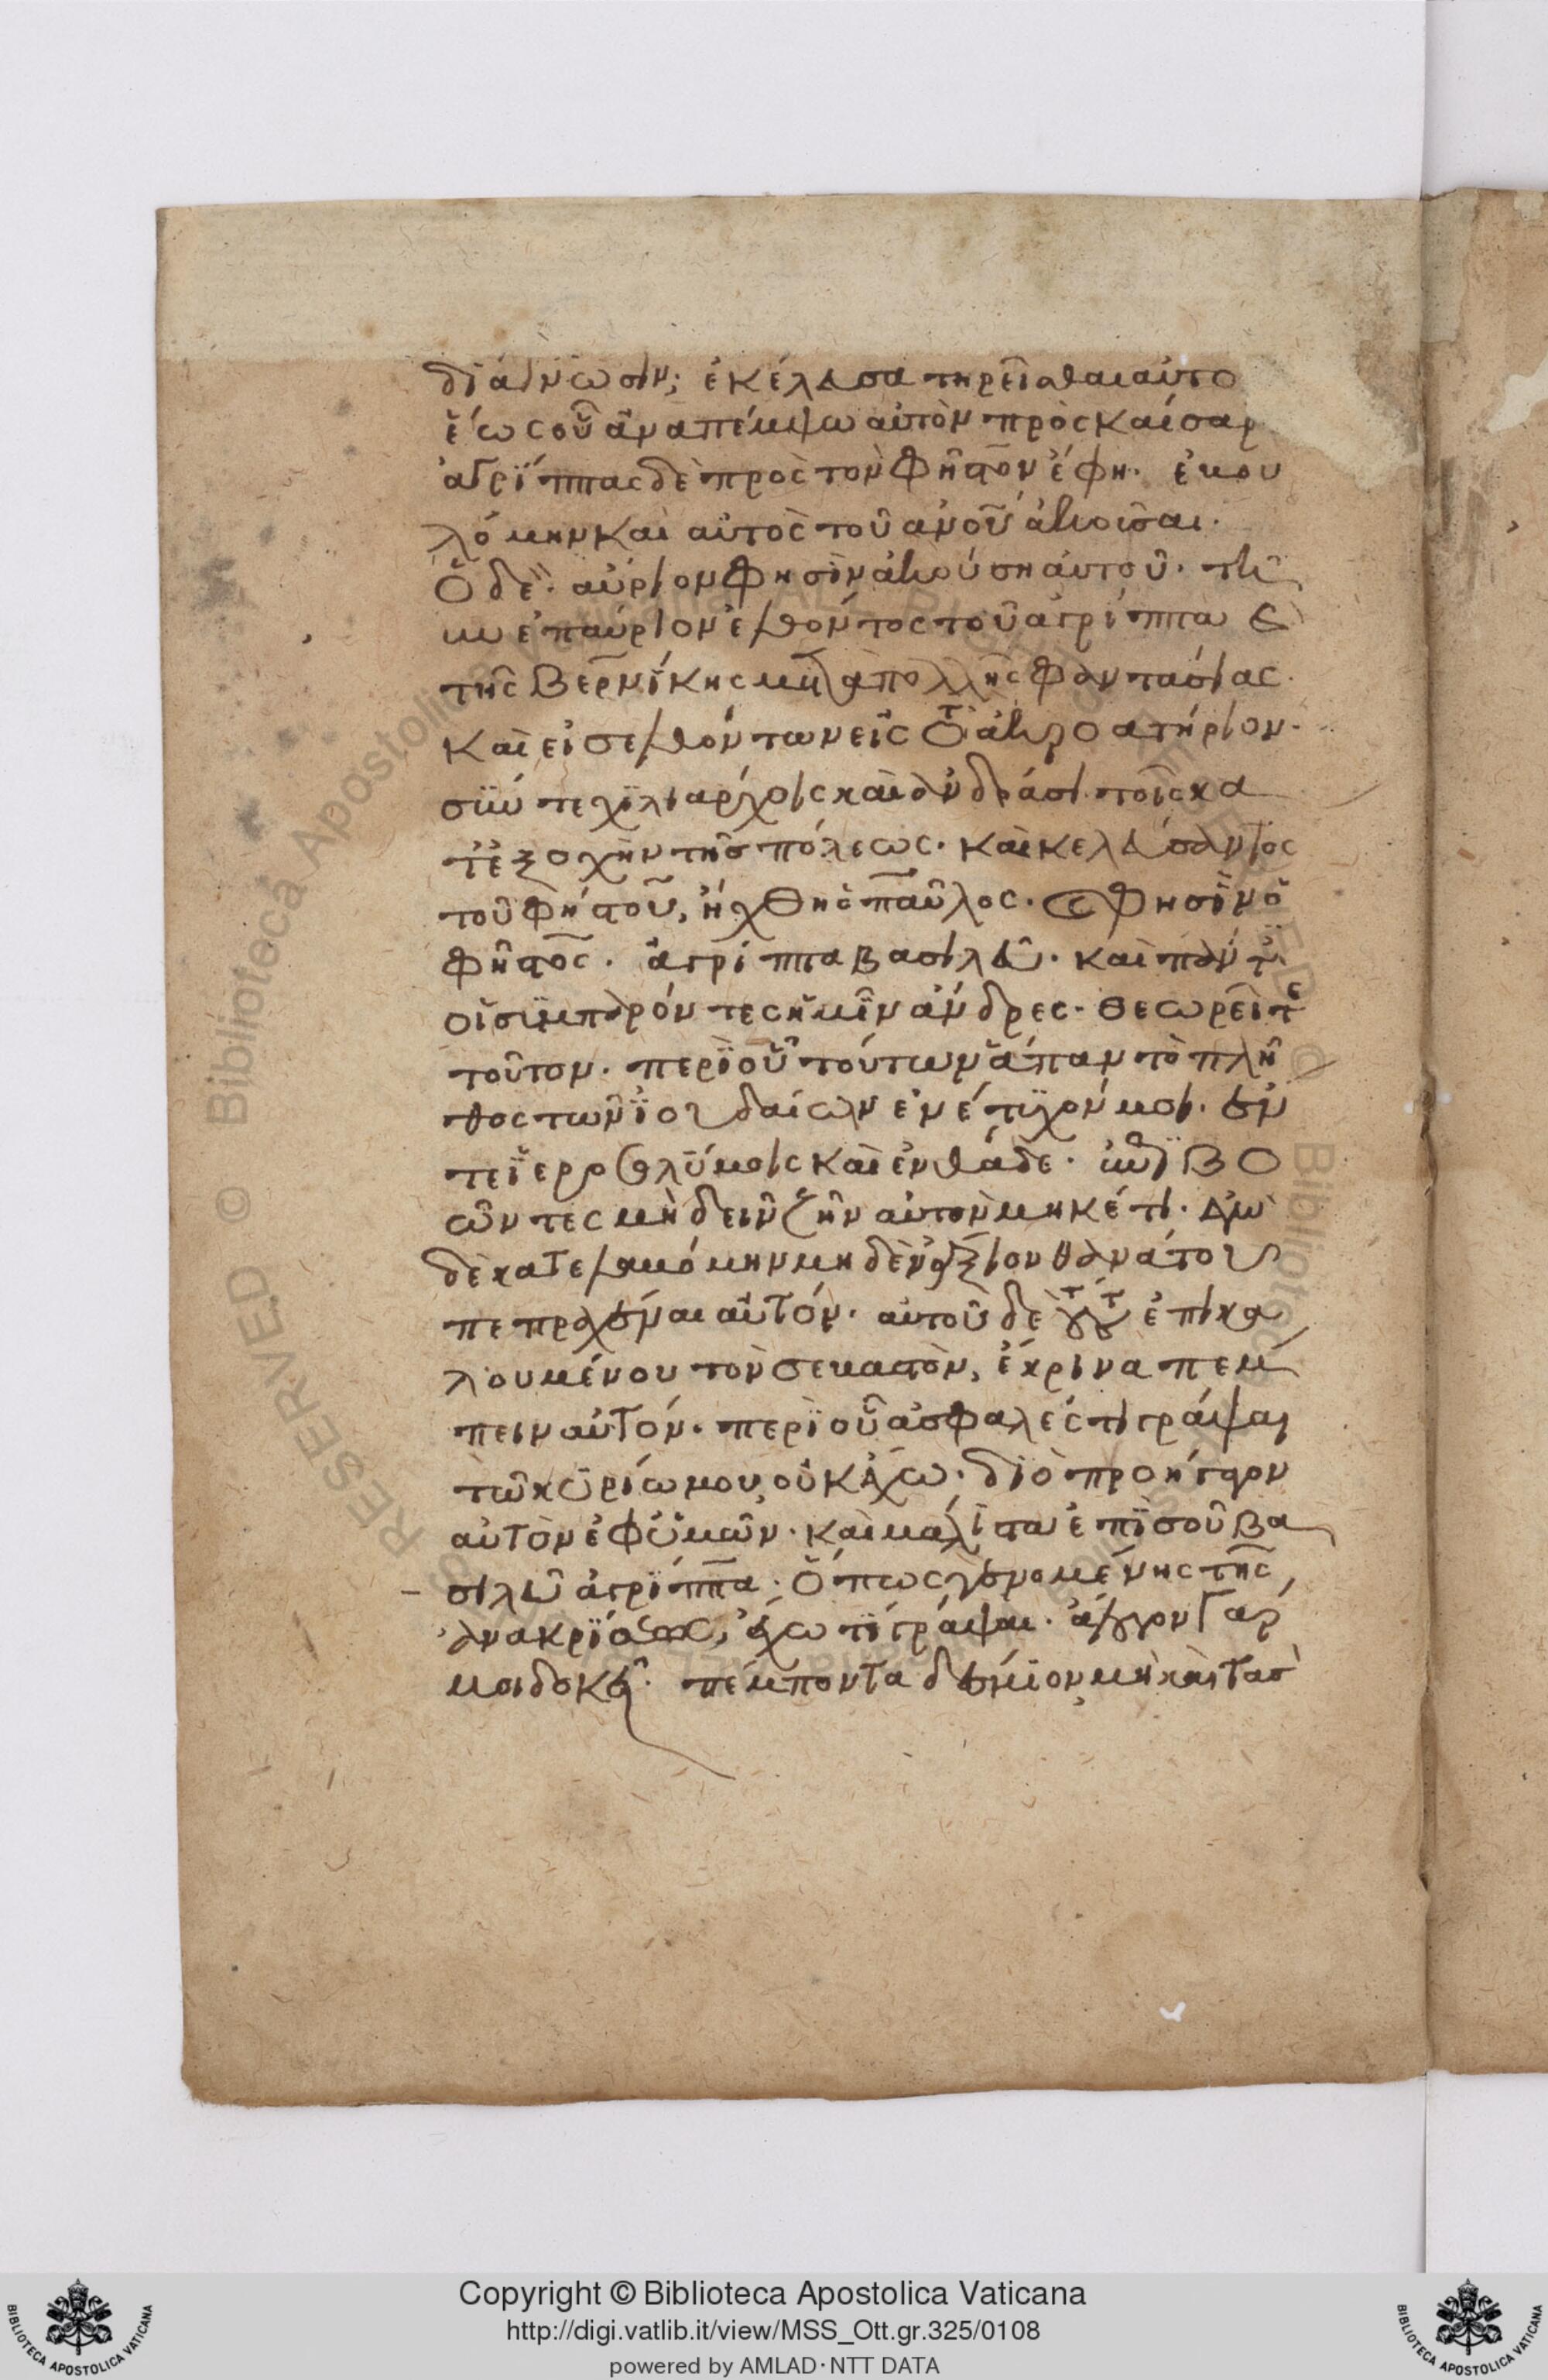 διάγνωσιν; ἐκέλευσα τηρεῖσθαι αὐτὸ
ἕως οὗ ἀναπέμψω αὐτὸν πρὸς καίσαρ
ἀγρίππας δὲ πρὸς τὸν φῆστον ἔφη. ἐβου
λόμην καὶ αὐτὸς τοῦ ἀνοῦ ἀκοῦσαι.
ὁ δὲ. αὔριον φησὶν ἀκούσῃ αὐτοῦ. τῆ
ἐπαύριον ἐλθόντος τοῦ ἀγρίππα καὶ
τῆς βερνίκης μετὰ πολλῆς φαντασίας.
καὶ εἰσελθόντων εἰς τὸ ἀκροατήριον.
σύν τε χιλιάρχοις καὶ ἀνδράσι τοῖς κα
τ ἐξοχὴν τῆς πόλεως. καὶ κελεύσαντος
τοῦ φήστου, ἤχθη ὁ παῦλος. καὶ φησὶν ὁ
φῆστος. ἀγρίππα βασιλεῦ. καὶ πάντες
οἱ συμπαρόντες ἡμῖν ἄνδρες. θεωρεῖτε
τοῦτον. περὶ οὗ τούτων ἅπαν τὸ πλῆ
θος τῶν ἰουδαίων ἐνέτυχόν μοι. ἔν
τε ἱεροσολύμοις καὶ ἐνθάδε. ἐπιβο
ῶντες μὴ δεῖν ζῆν αὐτὸν μηκέτι. ἐγὼ
δὲ καταλαβόμην μηδὲν ἄξιον θανάτου
πεπραχέναι αὐτόν. αὐτοῦ δὲ τούτου ἐπικα
λουμένου τὸν σεβαστὸν, ἔκρινα πέμ
πειν αὐτόν. περὶ οὗ ἀσφαλές τι γράψαι
τῶ κυρίω μου, οὐκ ἔχω. διὸ προήγαγον
αὐτὸν ἐφ ὑμῶν. καὶ μάλιστα ἐπὶ σοῦ βα
σιλεῦ ἀγρίππα. ὅπως γενομένης τῆς
ἀνακρίσεως, ἔχω τι γράψαι. ἄλογον γάρ
μοι δοκεῖ. πέμποντα δέσμιον, μὴ καὶ τὰσ